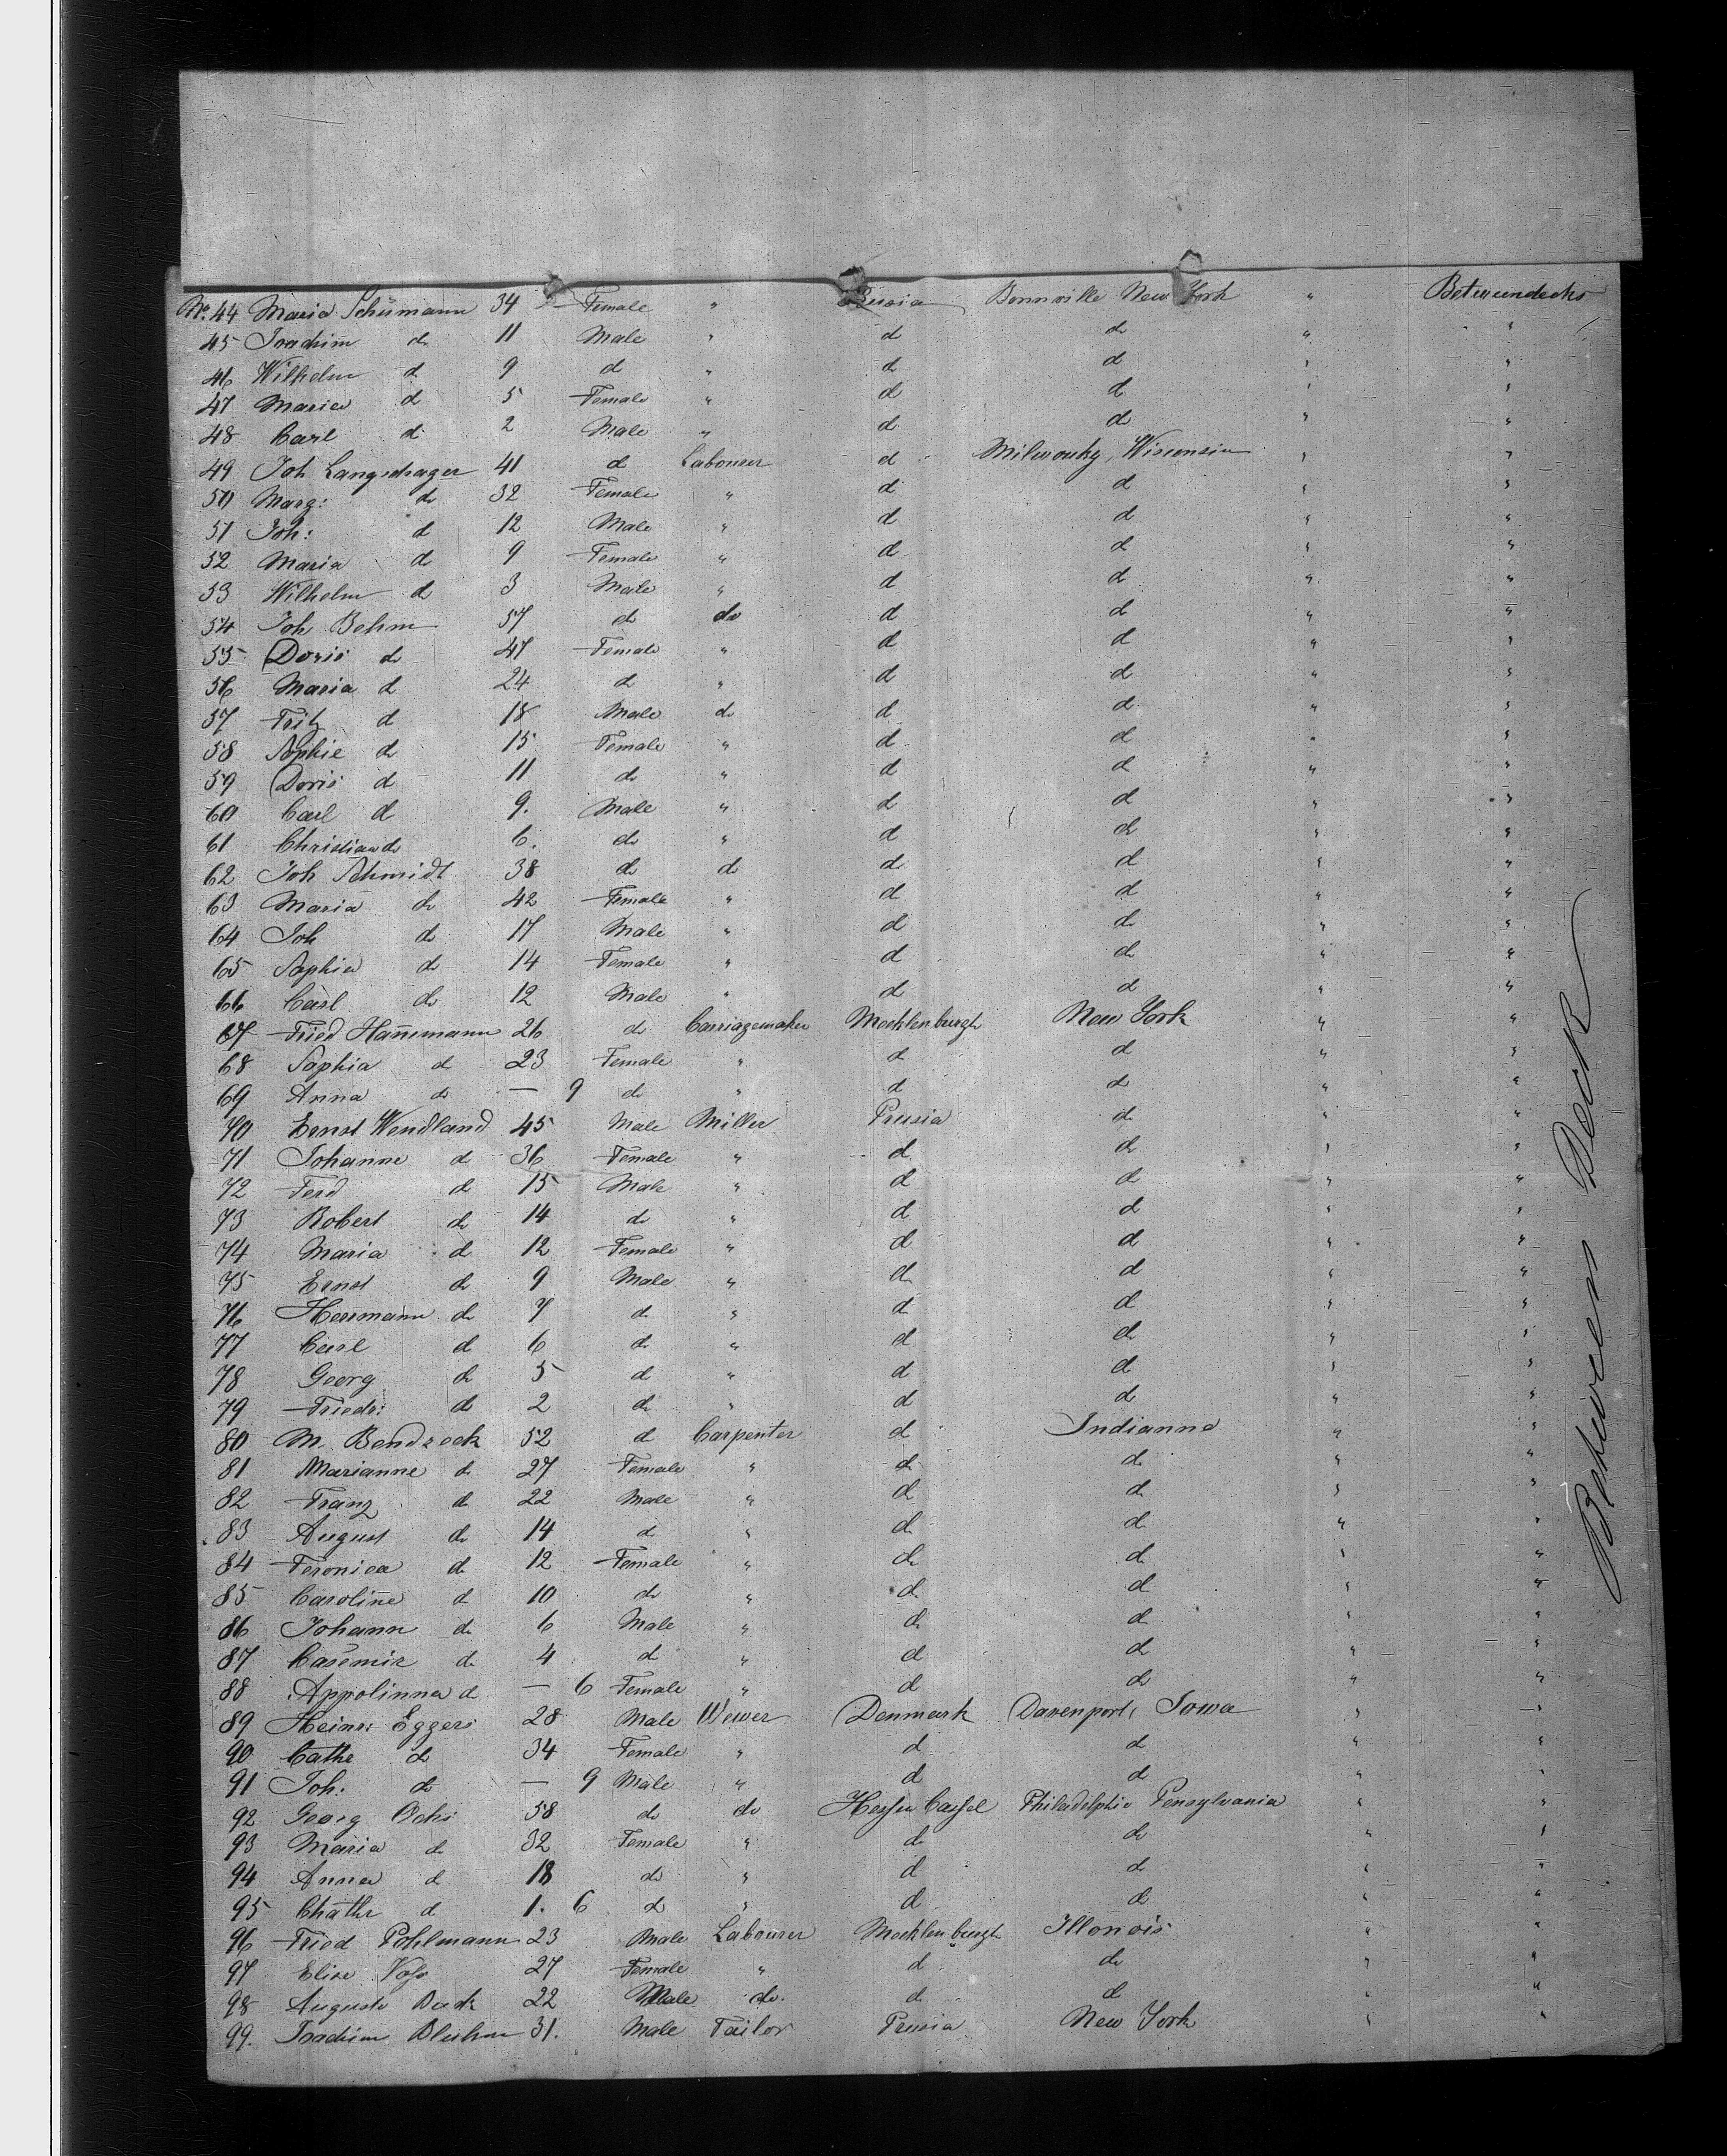 No. 44 Maria Schümann 34 Female " Prusia Bonnville New York " Betweendecks
45 Joachim do 11 Male " d d " "
46 Wilhelm d 9 d " d d " "
47 Maria d 5 Female " d d " "
48 Carl d 2 Male " d d " "
49 Joh Langschager 41 d Labourer d Milwouky, Wisconsin " "
50 Marg: do 32 Female " d d " "
51 Joh: d 12 Male " d d " "
52 Maria do 9 Female " d d " "
53 Wilhelm d 3 Male " d d " "
54 Joh Behm 57 d do d d " "
55 Doris do 47 Female " d d " "
56 Maria d 24 d " d d " "
57 Fritz d 18 Male do d d " "
58 Sophie do 15 Female " d d " "
59 Doris d 11 do " d d " "
60 Carl d 9. Male " d d " "
61 Christian do 6. do " d do " "
62 Joh Schmidt 38 do do d d " "
63 Maria do 42 Female " d d " "
64 Joh do 17 Male " d do " "
65 Sophia do 14 Female " d do " "
66 Carl do 12 Male " d d " "
67 Fried Hammann 26 do Carriagemaker Mecklenburgh New York " "
68 Sophia d 23 Female " d d " "
69 Anna do — 9 do " d d " "
70 Ernst Wendland 45 Male Miller Prusia d " "
71 Johanne d 36 Female " d do " "
72 Ferd d 15 Male " d d " "
73 Robert do 14 do " d d " "
74 Maria d 12 Female " d d " "
75 Ernst do 9 Male " d d " "
76 Herrmann do 7 d " d d " "
77 Carl d 6 do " d d " "
78 Georg do 5 d " d d " "
79 Friedr: do 2 do " d d " "
80 M. Bendzeck 52 d Carpenter d Indianna " "
81 Marianne do 27 Female " d d " "
82 Franz d 22 Male " d d " "
83 August do 14 d " d d " "
84 Feronica do 12 Female " d d " "
85 Caroline d 10 do " d d " "
86 Johann do 6 Male " d d " "
87 Casemir do 4 d " d d " "
88 Appolinna d — 6 Female " d do " "
89 Heinr: Eggers 28 Male Wewer Denmark Davenport, Iowa " "
90 Cathe do 34 Female " d d " "
91 Joh: do — 9 Male " d d " "
92 Georg Ochs 58 do do Hessen Cassel Philadelphia Pensylvania " "
93 Maria do 32 Female " d do " "
94 Anna d 18 do " d d " "
95 Chathr d 1. 6 d " d d " "
96 Fried Pohlmann 23 Male Labourer Mecklenburgh Illonois " "
97 Elise Voss 27 Female " d do " "
98 Auguste 22 Male do. d d " "
99. Joachim Bluhm 31. Male Tailor Prusia New York " "
Between Deck